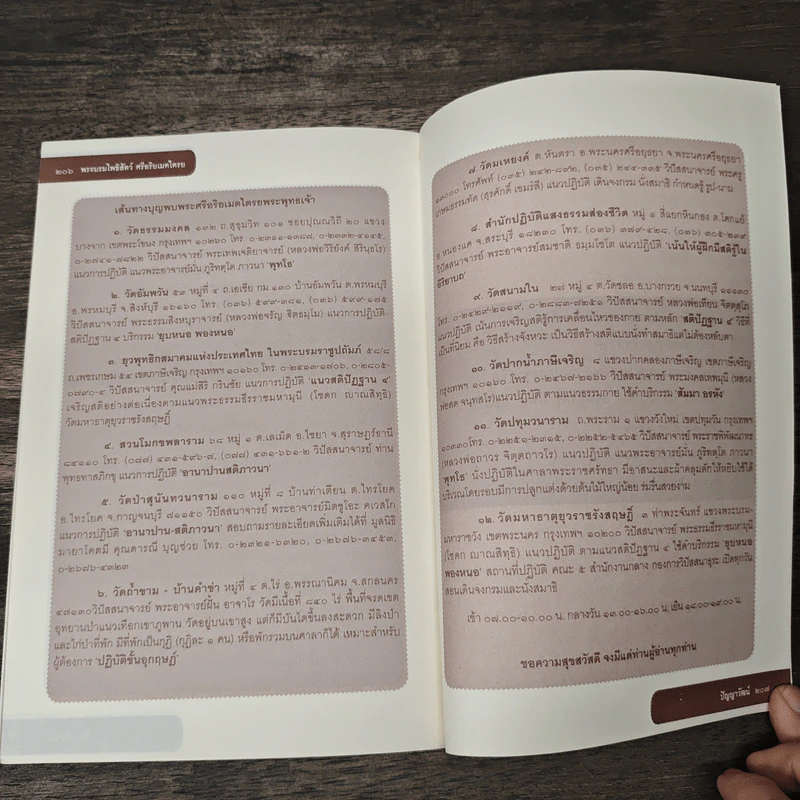 ๒๐๖ พระบรมโพธิสัตว์ ศรีอริยเมตไตรย
เส้นทางบุญพบพระศรีอริยเมตไตรยพระพุทธเจ้า
๑. วัดธรรมมงคล ๑๓๒ ถ.สุขุมวิท ๑๐๑ ซอยปุณณวิถี ๒๐ แขวง
บางจาก เขตพระโขนง กรุงเทพฯ ๑๐๒๖๐ โทร. ๐-๒๓๑๑-๑๓๘๗, ๐-๒๓๓๒-๔๑๔๕,
๐-๒๗๔๑-๗๘๒๒ วิปัสสนาจารย์ พระเทพเจติยาจารย์ (หลวงพ่อวิริยังค์ สิรินฺธโร)
แนวการปฏิบัติ แนวพระอาจารย์มั่น ภูริทตฺโต ภาวนา 'พุทโธ'
๒. วัดอัมพวัน ๕๓ หมู่ที่ ๔ ถ.เอเชีย กม.๑๓๐ บ้านอัมพวัน ต.พรหมบุรี
อ.พรหมบุรี จ.สิงห์บุรี ๑๖๑๖๐ โทร. (๐๓๖) ๕๙๙-๓๘๑, (๐๓๖) ๕๙๙-๑๗๕
วิปัสสนาจารย์ พระธรรมสิงหบุราจารย์ (หลวงพ่อจรัญ ฐิตธมฺโม) แนวการปฏิบัติ-
สติปัฏฐาน ๔ บริกรรม 'ยุบหนอ พองหนอ'
๓. ยุวพุทธิกสมาคมแห่งประเทศไทย ในพระบรมราชูปถัมภ์ ๕๘/๘
ถ.เพชรเกษม ๕๔ เขตภาษีเจริญ กรุงเทพฯ ๑๐๑๖๐ โทร. ๐-๒๔๑๓-๑๗๐๖, ๐-๒๘๐๕-
๐๗๙๐-๔ วิปัสสนาจารย์ คุณแม่สิริ กรินชัย แนวการปฏิบัติ 'แนวสติปัฏฐาน ๔'
เจริญสติอย่างต่อเนื่องตามแนวพระธรรมธีรราชมหามุนี (โชดก ญาณสิทฺธิ)
วัดมหาธาตุยุวราชรังสฤษฎิ์
๔. สวนโมกขพลาราม ๖๘ หมู่ ๑ ต.เลเม็ด อ.ไชยา จ.สุราษฎร์ธานี
๘๔๑๑๐ โทร. (๐๗๗) ๔๓๑-๕๙๖-๗, (๐๗๗) ๔๓๑-๖๖๑-๒ วิปัสสนาจารย์ ท่าน
พุทธทาสภิกขุ แนวการปฏิบัติ 'อานาปานสติภาวนา'
๕. วัดป่าสุนันทวนาราม ๑๑๐ หมู่ที่ ๘ บ้านท่าเตียน ต.ไทรโยค
อ.ไทรโยค จ.กาญจนบุรี ๗๑๑๕๐ วิปัสสนาจารย์ พระอาจารย์มิตซูโอะ คเวสโก
แนวการปฏิบัติ 'อานาปาน-สติภาวนา' สอบถามรายละเอียดเพิ่มเติมได้ที่ มูลนิธิ
มายาโคตมี คุณดารณี บุญช่วย โทร. ๐-๒๓๒๑-๖๓๒๐, ๐-๒๖๗๖-๓๔๕๓,
๐-๒๖๗๖-๔๓๒๓
๖. วัดถ้ำขาม - บ้านคำข่า หมู่ที่ ๔ ต.ไร่ อ.พรรณานิคม จ.สกลนคร
๔๗๑๓๐วิปัสสนาจารย์ พระอาจารย์ฝั้น อาจาโร วัดมีเนื้อที่ ๘๔๐ ไร่ พื้นที่จรดเขต
อุทยานป่าแนวเทือกเขาภูพาน วัดอยู่บนเขาสูง แต่ก็มีบันไดขึ้นลงสะดวก มีลิงป่า
และไก่ป่าที่พัก มีที่พักเป็นกุฏิ (กุฏิละ ๑ คน) หรือพักรวมบนศาลาก็ได้ เหมาะสำหรับ
ผู้ต้องการ 'ปฏิบัติขั้นอุกฤษฏ์'
๗. วัดมเหยงค์ ต.หันตรา อ.พระนครศรีอยุธยา จ.พระนครศรีอยุธยา
๑๓๐๐๐ โทรศัพท์ (๐๓๕) ๒๔๒-๘๙๒, (๐๓๕) ๒๔๔-๓๓๕ วิปัสสนาจารย์ พระครู
เกษมธรรมทัต (สุรศักดิ์ เขมรํสี) แนวปฏิบัติ เดินจงกรม นั่งสมาธิ กำหนดรู้ รูป-นาม
๘. สำนักปฏิบัติแสงธรรมส่องชีวิต หมู่ ๑ สี่แยกหินกอง ต.โคกแย้
อ.หนองแค จ.สระบุรี ๑๘๒๓๐ โทร. (๐๓๖) ๓๗๙-๔๒๘, (๐๓๖) ๓๐๕-๒๓๙
วิปัสสนาจารย์ พระอาจารย์สมชาติ ธมฺมโชโต แนวปฏิบัติ 'เน้นให้ผู้ฝึกมีสติรู้ใน
อิริยาบถ'
๙. วัดสนามใน ๒๗ หมู่ ๔ ต.วัดชลอ อ.บางกรวย จ.นนทบุรี ๑๑๑๓๐
โทร. ๐-๒๔๒๙-๒๑๑๙, ๐-๒๘๘๓-๗๒๕๑ วิปัสสนาจารย์ หลวงพ่อเทียน จิตฺตสุโภ
แนวปฏิบัติ เน้นการเจริญสติรู้การเคลื่อนไหวของกาย ตามหลัก 'สติปัฏฐาน ๔ วิธีที่
เป็นที่นิยม คือ วิธีสร้างจังหวะ เป็นวิธีสร้างสติแบบนั่งทำสมาธิแต่ไม่ต้องหลับตา
๑๐. วัดปากน้ำภาษีเจริญ ๘ แขวงปากคลองภาษีเจริญ เขตภาษีเจริญ
กรุงเทพฯ ๑๐๑๖๐ โทร. ๐-๒๔๖๗-๒๑๖๖ วิปัสสนาจารย์ พระมงคลเทพมุนี (หลวง
พ่อสด จนฺทสโร) แนวปฏิบัติ ตามแนวธรรมกาย ใช้คำบริกรรม 'สัมมา อรหัง'
๑๑. วัดปทุมวนาราม ถ.พระราม ๑ แขวงวังใหม่ เขตปทุมวัน กรุงเทพฯ
๑๐๓๓๐โทร. ๐-๒๒๕๑-๒๓๑๕, ๐-๒๒๕๒-๕๔๖๕ วิปัสสนาจารย์ พระราชพิพัฒนาทร
(หลวงพ่อถาวร จิตฺตถาวโร) แนวปฏิบัติ แนวพระอาจารย์มั่น ภูริทตฺโต ภาวนา
'พุทโธ' นั่งปฏิบัติในศาลาพระราชศรัทธา มีอาสนะและผ้าคลุมตักให้หยิบใช้ได้
บริเวณโดยรอบมีการปลูกแต่งด้วยต้นไม้ใหญ่น้อย ร่มรื่นสวยงาม
๑๒. วัดมหาธาตุยุวราชรังสฤษฎิ์ ๓ ท่าพระจันทร์ แขวงพระบรม-
มหาราชวัง เขตพระนคร กรุงเทพฯ ๑๐๒๐๐ วิปัสสนาจารย์ พระธรรมธีรราชมหามุนี
(โชดก ญาณสิทฺธิ) แนวปฏิบัติ ตามแนวสติปัฏฐาน ๔ ใช้คำบริกรรม 'ยุบหนอ
พองหนอ' สถานที่ปฏิบัติ คณะ ๕ สำนักงานกลาง กองการวิปัสสนาธุระ เปิดทุกวัน
สอนเดินจงกรมและนั่งสมาธิ
เช้า ๐๗.๐๐-๑๐.๐๐ น. กลางวัน ๑๓.๐๐-๑๖.๐๐ น. เย็น ๑๘.๐๐-๑๙.๐๐ น.
ขอความสุขสวัสดี จงมีแด่ท่านผู้อ่านทุกท่าน
ปัญญาวัฒน์ ๒๐๗